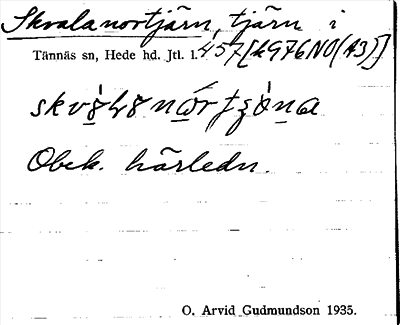 Skvalanortjärn, tjärn i
Tännäs sn, Hede hd. Jtl. l. 457 [k976NO(A3)]
Obek. härledn.
O. Arvid Gudmundson 1935.